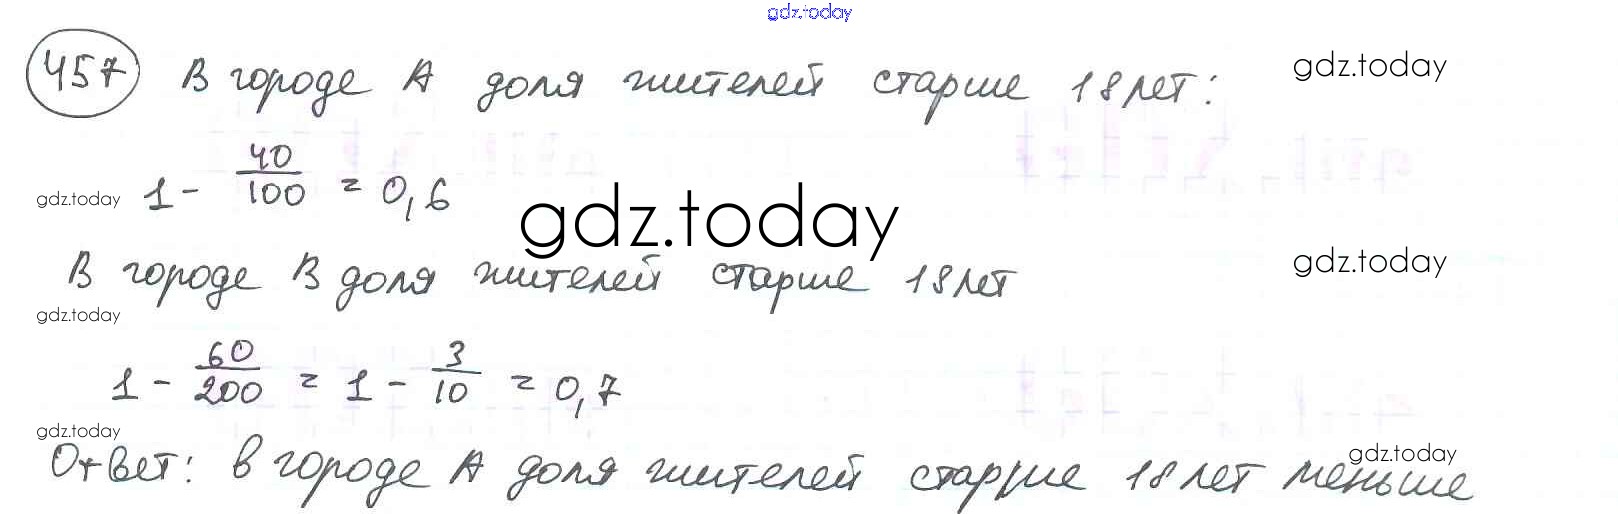 gdz.today
457 В городе А доля жителей старше 18 лет: gdz.today
gdz.today 1 - 40/100 = 0,6 gdz.today
В городе В доля жителей старше 18 лет gdz.today
gdz.today
1 - 60/200 = 1 - 3/10 = 0,7
gdz.today
Ответ: в городе А доля жителей старше 18 лет меньше gdz.today